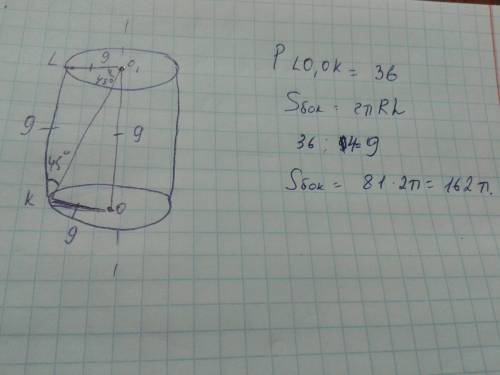 L 9 O₁
45°
9
9
45°
K O
9
P LO₁OK = 36
Sбок = 2πRL
36 : 4 = 9
Sбок = 81 · 2π = 162π.